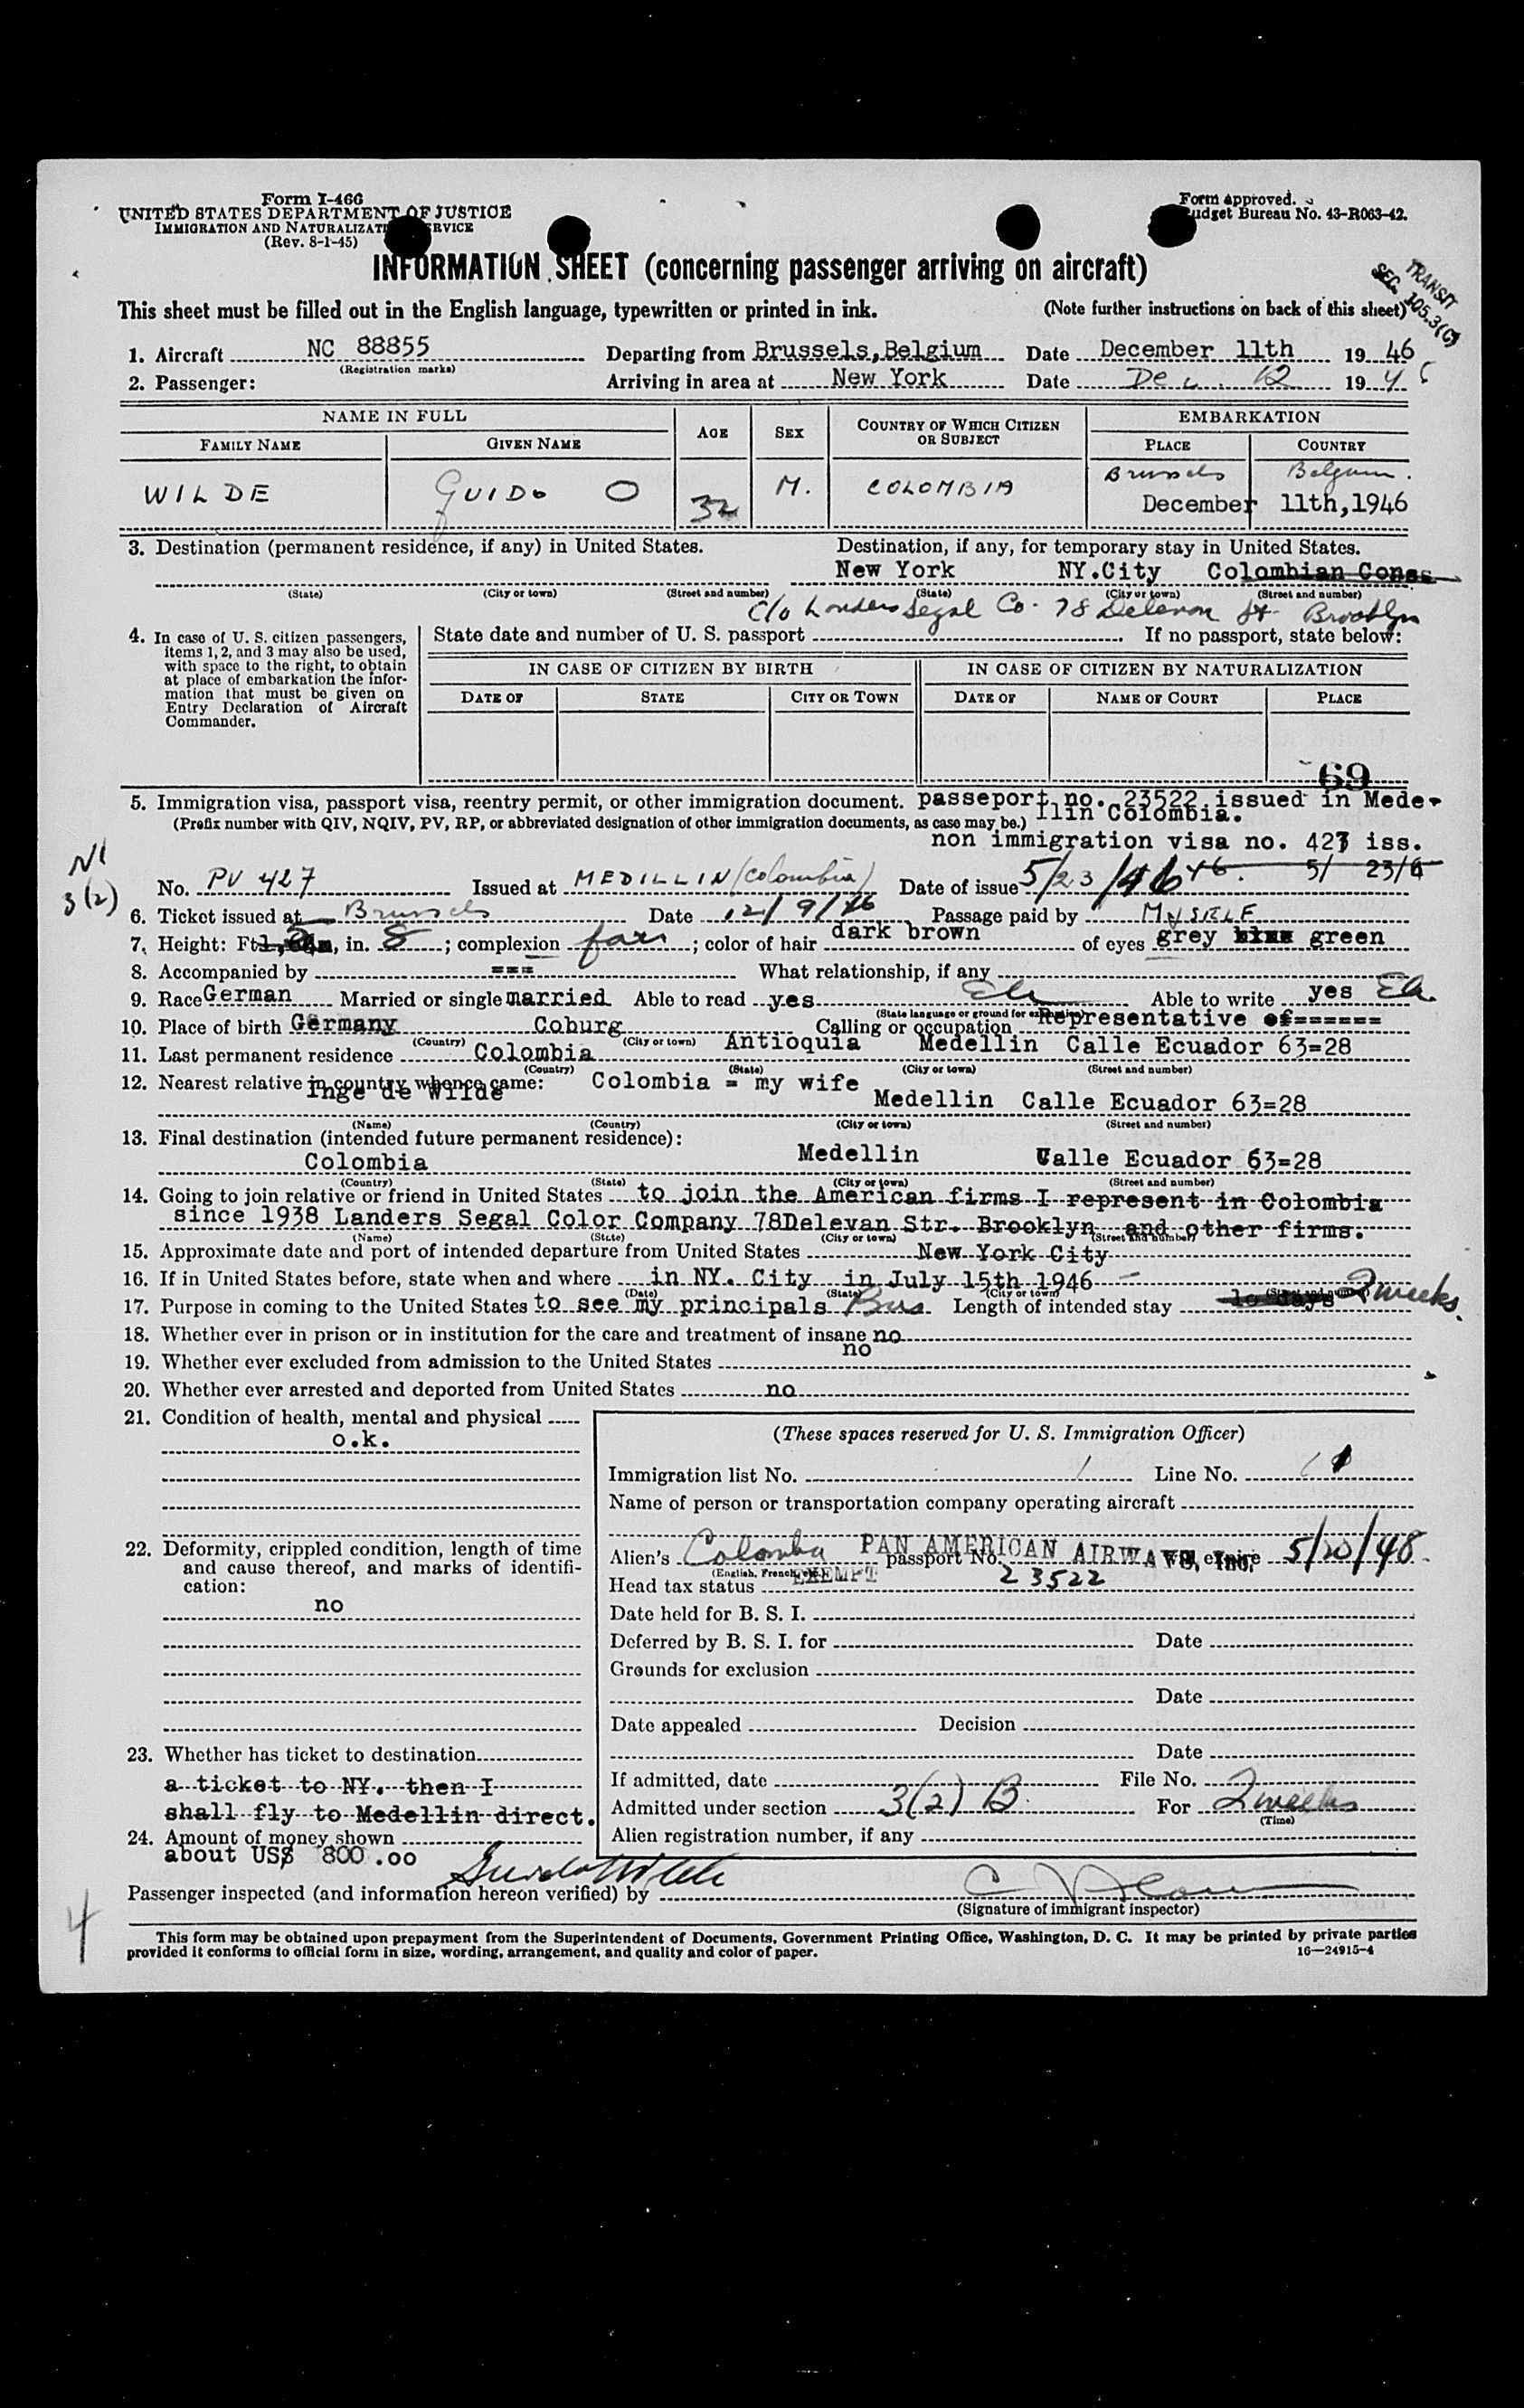 Form I-466
UNITED STATES DEPARTMENT OF JUSTICE
IMMIGRATION AND NATURALIZATION SERVICE
(Rev. 8-1-45)
Form approved.
Budget Bureau No. 43-R063-42.
INFORMATION SHEET (concerning passenger arriving on aircraft)
TRANSIT
SEC. 105.3(C)
This sheet must be filled out in the English language, typewritten or printed in ink. (Note further instructions on back of this sheet)
1. Aircraft NC 88855 Departing from Brussels, Belgium Date December 11th 1946
(Registration marks)
2. Passenger: Arriving in area at New York Date Dec. 12 1946
NAME IN FULL AGE SEX COUNTRY OF WHICH CITIZEN OR SUBJECT EMBARKATION
FAMILY NAME GIVEN NAME PLACE COUNTRY
WILDE GUIDO O 32 M. COLOMBIA Brussels Belgium.
December 11th,1946
3. Destination (permanent residence, if any) in United States. Destination, if any, for temporary stay in United States.
New York NY.City Colombian Cons
(State) (City or town) (Street and number) (State) (City or town) (Street and number)
c/o Landers Segal Co. 78 Delevan St. Brooklyn
4. In case of U. S. citizen passengers, items 1, 2, and 3 may also be used, with space to the right, to obtain at place of embarkation the information that must be given on Entry Declaration of Aircraft Commander.
State date and number of U. S. passport If no passport, state below:
IN CASE OF CITIZEN BY BIRTH IN CASE OF CITIZEN BY NATURALIZATION
DATE OF STATE CITY OR TOWN DATE OF NAME OF COURT PLACE
69
5. Immigration visa, passport visa, reentry permit, or other immigration document. passeport no. 23522 issued in Mede-
(Prefix number with QIV, NQIV, PV, RP, or abbreviated designation of other immigration documents, as case may be.) llin Colombia.
non immigration visa no. 427 iss.
NI
3(2)
No. PV 427 Issued at MEDILLIN (Colombia) Date of issue 5/23/46 46. 5/ 23/6
6. Ticket issued at Brussels Date 12/9/46 Passage paid by MYSELF
7. Height: Ft. 5, in. 8; complexion fair; color of hair dark brown of eyes grey green
8. Accompanied by === What relationship, if any
9. Race German Married or single married Able to read yes Able to write yes
(State language or ground for exemption)
10. Place of birth Germany Coburg Calling or occupation Representative of======
(Country) (City or town)
11. Last permanent residence Colombia Antioquia Medellin Calle Ecuador 63=28
(Country) (State) (City or town) (Street and number)
12. Nearest relative in country whence came: Colombia = my wife
Inge de Wilde Medellin Calle Ecuador 63=28
(Name) (Country) (City or town) (Street and number)
13. Final destination (intended future permanent residence):
Colombia Medellin Calle Ecuador 63=28
(Country) (State) (City or town) (Street and number)
14. Going to join relative or friend in United States to join the American firms I represent in Colombia
since 1938 Landers Segal Color Company 78Delevan Str. Brooklyn and other firms.
(Name) (State) (City or town) (Street and number)
15. Approximate date and port of intended departure from United States New York City
16. If in United States before, state when and where in NY. City in July 15th 1946
(Date) (State) (City or town) (Street and number)
17. Purpose in coming to the United States to see my principals Bus. Length of intended stay 1o days 2 weeks.
18. Whether ever in prison or in institution for the care and treatment of insane no
19. Whether ever excluded from admission to the United States no
20. Whether ever arrested and deported from United States no
21. Condition of health, mental and physical
o.k.
22. Deformity, crippled condition, length of time and cause thereof, and marks of identification:
no
23. Whether has ticket to destination
a ticket to NY. then I
shall fly to Medellin direct.
24. Amount of money shown
about US$ 800.oo
(These spaces reserved for U. S. Immigration Officer)
Immigration list No. 1 Line No.
Name of person or transportation company operating aircraft
PAN AMERICAN AIRWAYS, Inc.
Alien's Colombia passport No. 23522 will expire 5/20/48.
(English, French, etc.)
Head tax status EXEMPT
Date held for B. S. I.
Deferred by B. S. I. for Date
Grounds for exclusion
Date
Date appealed Decision
Date
If admitted, date File No.
Admitted under section 3(2) B. For 2 weeks
(Time)
Alien registration number, if any
Guido Wilde
Passenger inspected (and information hereon verified) by
(Signature of immigrant inspector)
4
This form may be obtained upon prepayment from the Superintendent of Documents, Government Printing Office, Washington, D. C. It may be printed by private parties
provided it conforms to official form in size, wording, arrangement, and quality and color of paper. 16—24915-4